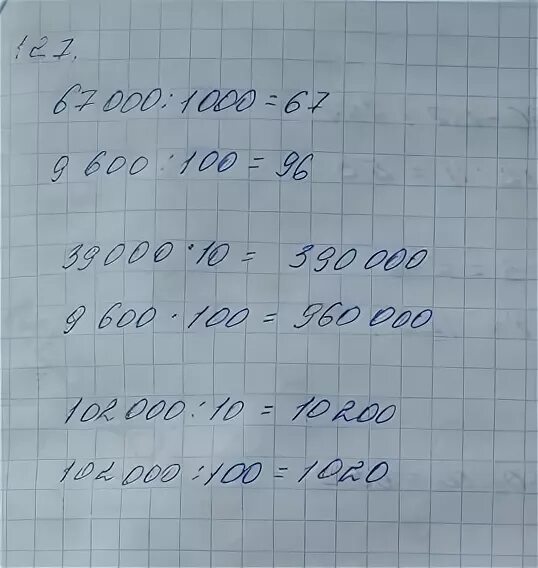 127.
67 000 : 1000 = 67
9 600 : 100 = 96
39000 · 10 = 390 000
9 600 · 100 = 960 000
102 000 : 10 = 10200
102 000 : 100 = 1020